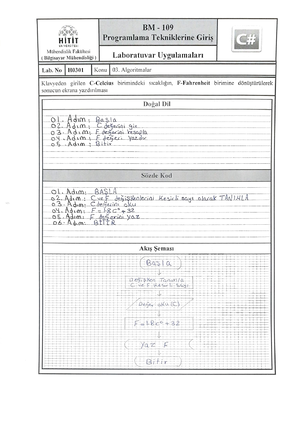 HİTİT
ÜNİVERSİTESİ
Mühendislik Fakültesi
( Bilgisayar Mühendisliği )
BM - 109
Programlama Tekniklerine Giriş
Laboratuvar Uygulamaları
C#
Lab. No H0301 Konu 03. Algoritmalar
Klavyeden girilen C-Celcius birimindeki sıcaklığın, F-Fahrenheit birimine dönüştürülerek
sonucun ekrana yazdırılması
Doğal Dil
01. Adım: Başla
02. Adım: C değerini gir
03. Adım: F değerini hesapla
04. Adım: F değeri yazdır
05. Adım: Bitir
Sözde Kod
01. Adım: BAŞLA
02. Adım: C ve F değişkenlerini kesirli sayı olarak TANIMLA
03. Adım: C değerini oku
04. Adım: F=1.8C°+32
05. Adım: F değerini yaz
06. Adım: BİTİR
Akış Şeması
Başla
Değişken Tanımla
C ve F kesirli sayı
Değer oku (C)
F=1.8C°+32
Yaz F
Bitir